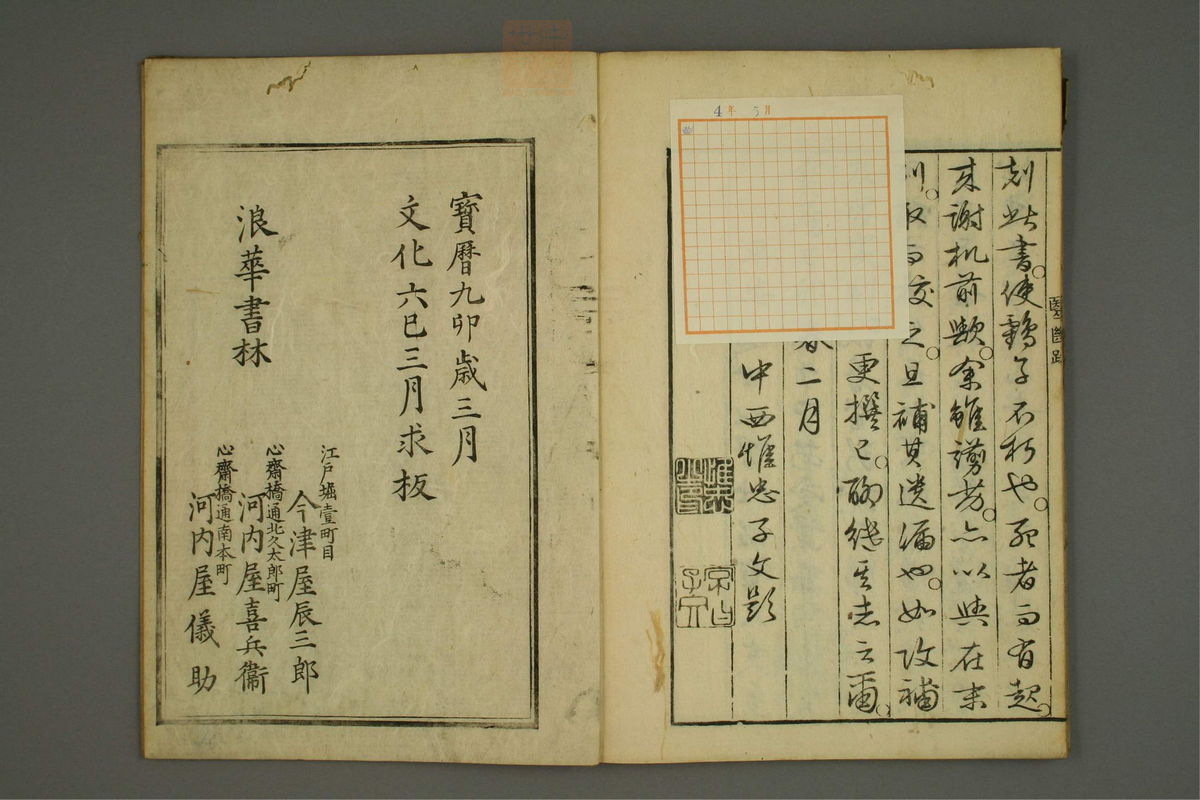 刻此書。使鶴子不朽也。死者而有起。
来謝机前歟。余雖謭劣。亦以與在末
列。取而校之。且補其遺漏也。如改補
更撰已。酬継其志云爾。
春二月
中西惟忠子文題
醫斷跋
4年 5月
寶曆九卯歲三月
文化六巳三月求板
浪華書林
江戸堀壹町目
今津屋辰三郎
心齋橋通北久太郎町
河内屋喜兵衞
心齋橋通南本町
河内屋儀助